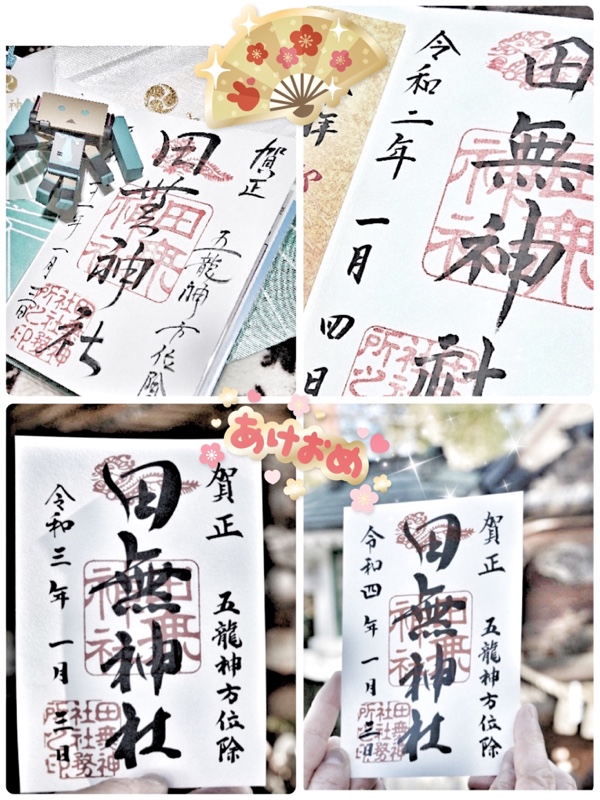 賀正
五龍神方位
田無神社
田無神社
一月
田無神社社務所之印
田無神社
田無神社
令和二年 一月 四日
年
あけおめ
賀正 五龍神方位除
田無神社
田無神社
令和三年 一月 三日
田無神社社務所之印
賀正 五龍神方位除
田無神社
田無神社
令和四年 一月 三日